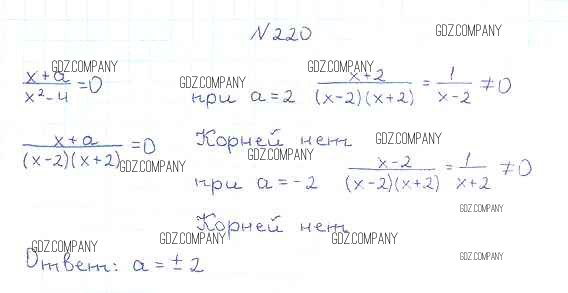 N 220
GDZ.COMPANY
GDZ.COMPANY
(x+a)/(x²-4) = 0
GDZ.COMPANY
при a=2
GDZ.COMPANY
(x+2)/((x-2)(x+2)) = 1/(x-2) ≠ 0
(x+a)/((x-2)(x+2)) = 0
GDZ.COMPANY
Корней нет
GDZ.COMPANY
GDZ.COMPANY
при a=-2
(x-2)/((x-2)(x+2)) = 1/(x+2) ≠ 0
GDZ.COMPANY
Корней нет
GDZ.COMPANY
GDZ.COMPANY
GDZ.COMPANY
Ответ: a = ± 2
GDZ.COMPANY